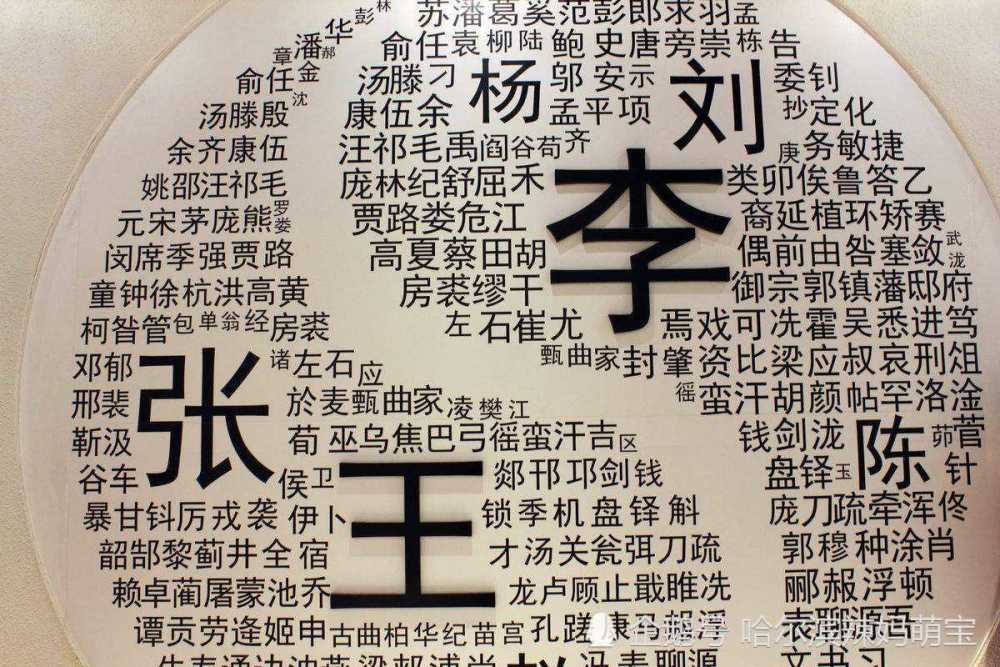 林
彭
华
苏潘葛奚范彭郎求羽孟
章潘郝
俞任袁柳陆鲍史唐旁崇栋告
俞任金
汤滕刁
杨
邬安示
刘
委钊
沈
汤滕殷
康伍余
孟平项
抄定化
余齐康伍
汪祁毛禹阎谷荀齐
庚务敏捷
姚邵汪祁毛
庞林纪舒屈禾
李
类卯俟鲁答乙
元宋茅庞熊罗娄
贾路娄危江
裔延植环矫赛
闵席季强贾路
高夏蔡田胡
偶前由昝塞敛武泷
童钟徐杭洪高黄
房裘缪干
御宗郭镇藩邸府
柯昝管包单翁经房裘
左石崔尤
焉戏可冼霍吴悉进笃
邓郁
张
诸左石应
甄曲家封肇资比梁应叔哀刑俎
邢裴
於麦甄曲家凌樊江
徭蛮汗胡颜帖罕洛淦
靳汲
荀巫乌焦巴弓徭蛮汗吉区
钱剑泷
陈
茆菅
谷车
侯卫
王
郯邗邛剑钱
盘铎玉
针
暴甘钭厉戎袭伊卜
锁季机盘铎斛
庞刀疏牵浑佟
韶郜黎蓟井全宿
才汤关瓮弭刀疏
郭穆种涂肖
赖卓蔺屠蒙池乔
龙卢顾止戢睢冼
郦赧浮顿
谭贡劳逢姬申古曲柏华纪苗宫孔蹉康
袁聊源
企鹅号 哈尔滨辣妈萌宝